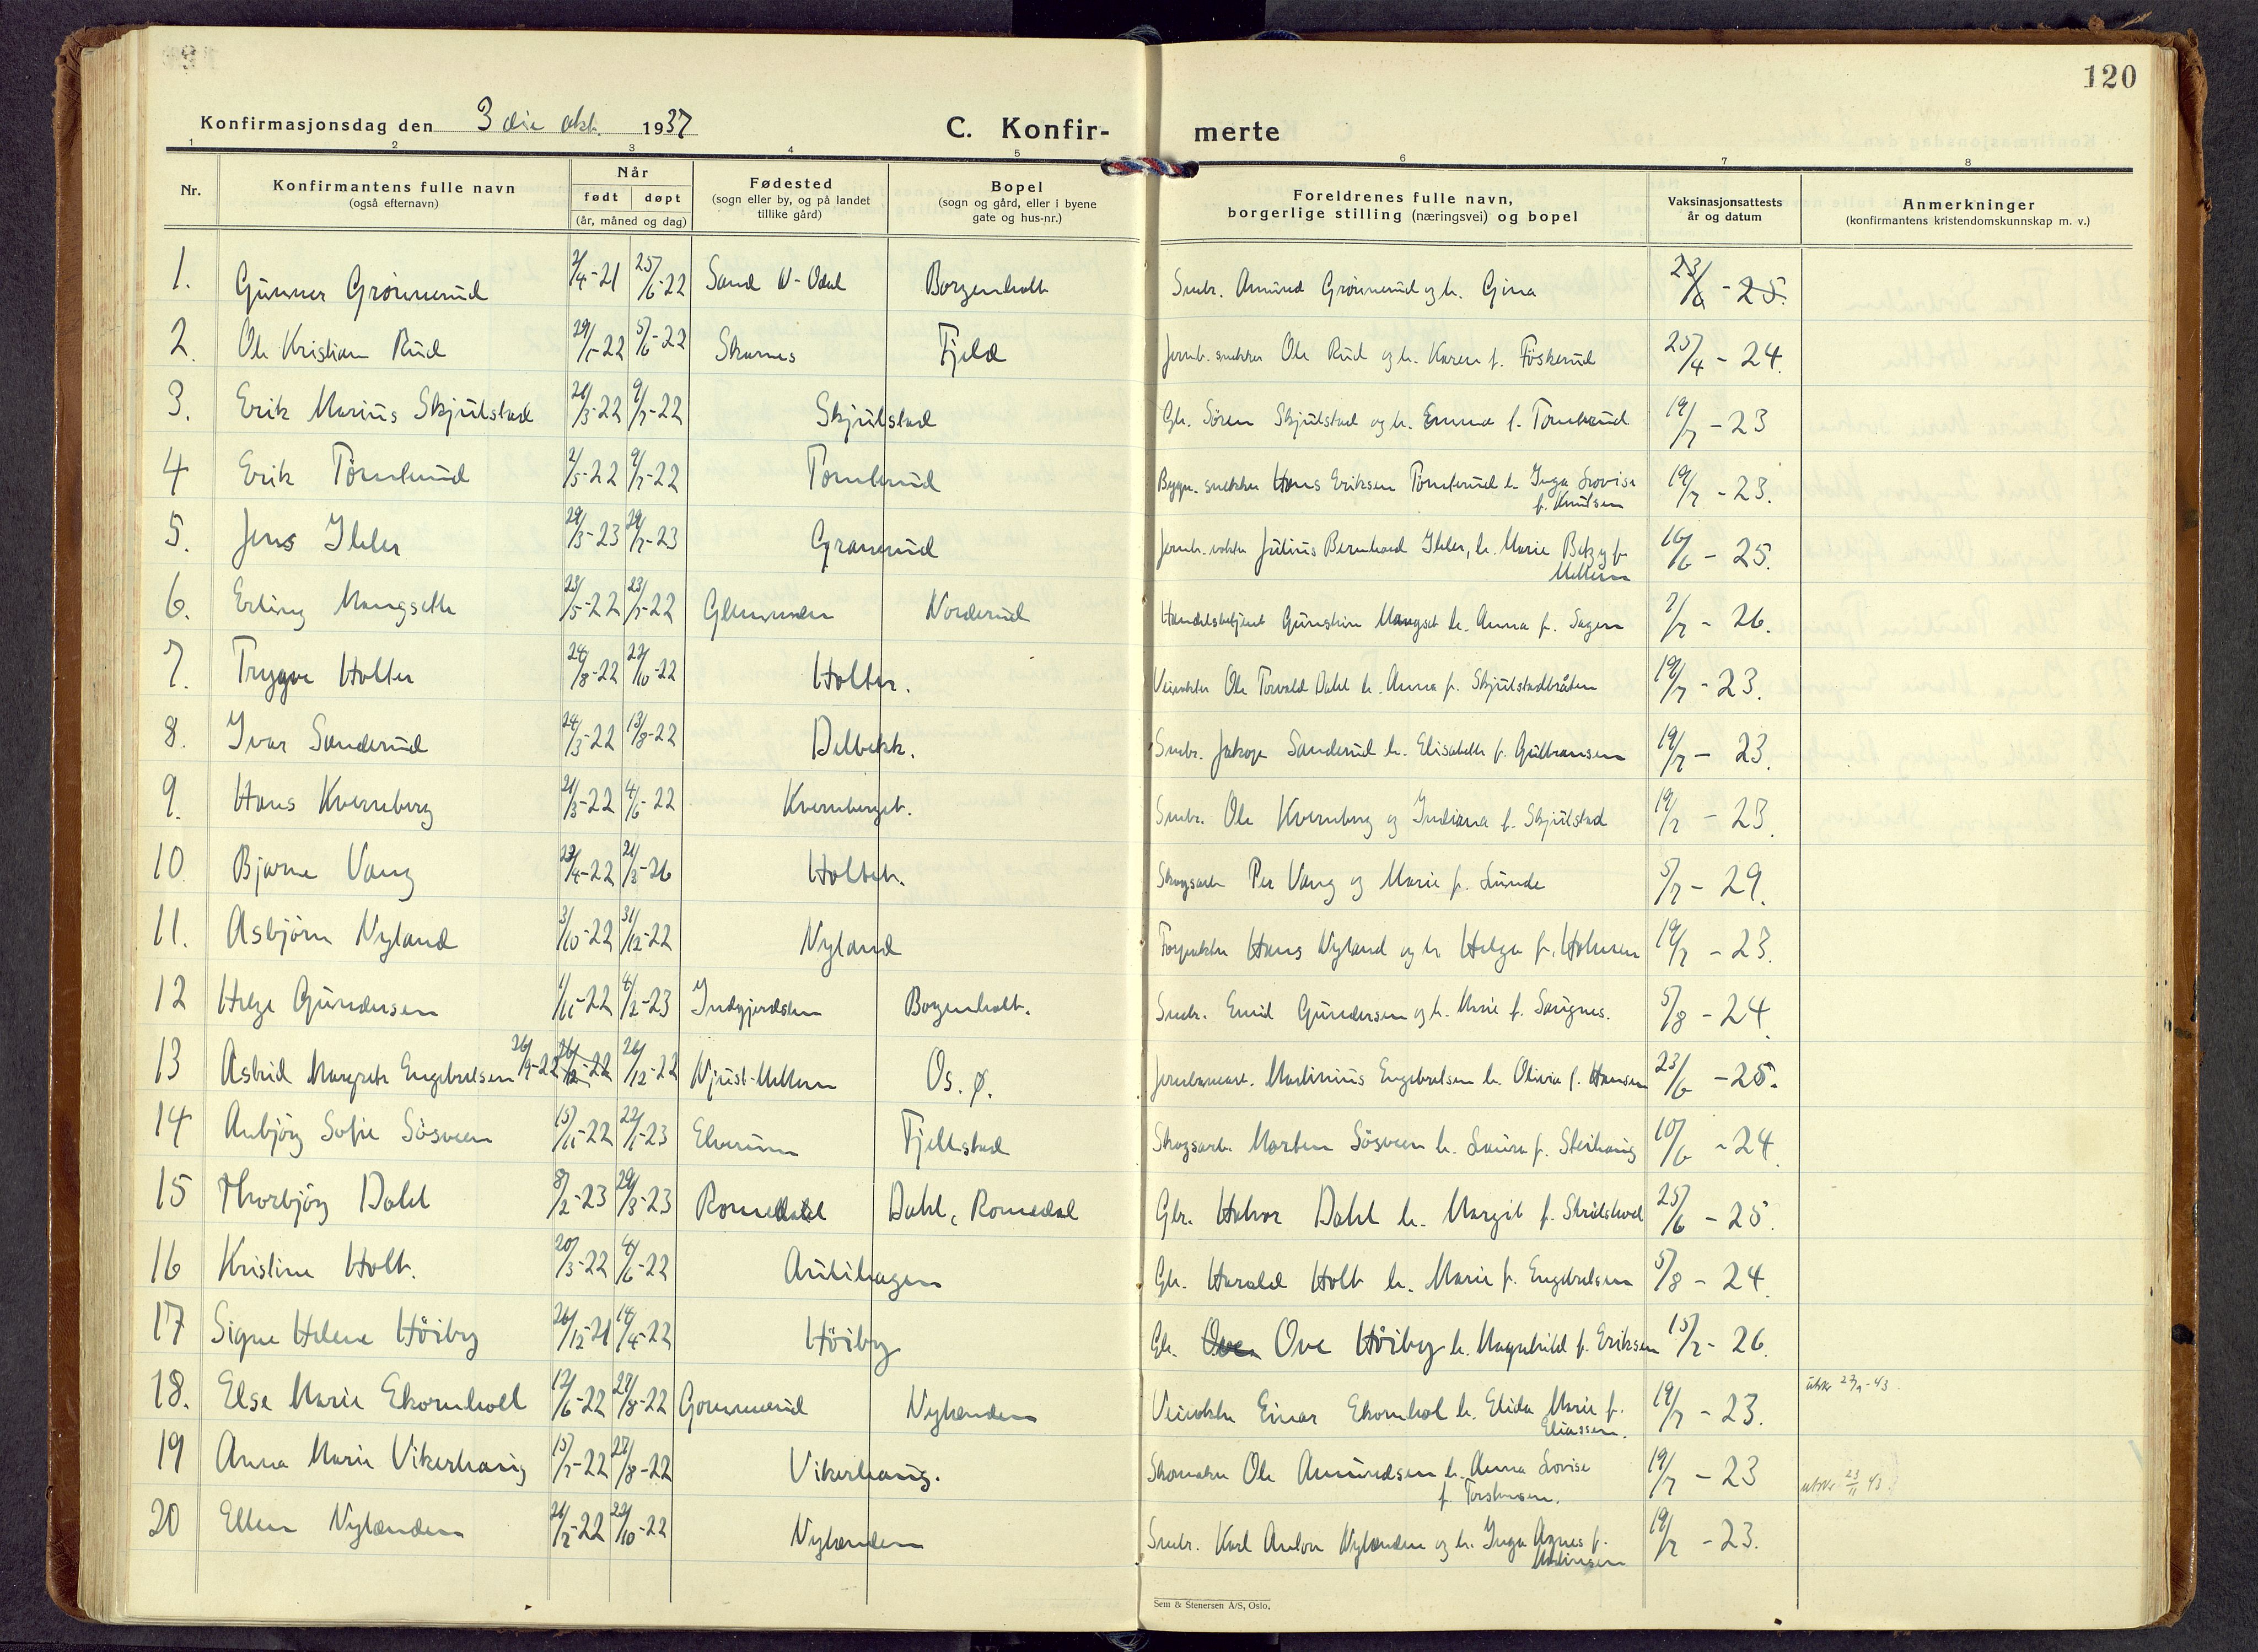 120
Konfirmasjonsdag den 3die okt. 1937
C. Konfir- merte
1 2 3 4 5 6 7 8
Nr.
Konfirmantens fulle navn
(også efternavn)
Når
født døpt
(år, måned og dag)
Fødested
(sogn eller by, og på landet
tillike gård)
Bopel
(sogn og gård, eller i byene
gate og hus-nr.)
Foreldrenes fulle navn,
borgerlige stilling (næringsvei) og bopel
Vaksinasjonsattests
år og datum
Anmerkninger
(konfirmantens kristendomskunnskap m. v.)
1. Gunnar Grönnerud 2/4-21 25/6-22 Sand N-Odal Borgenholt Smbr. Amund Grönnerud og h. Gina 23/6 - 25.
2. Ole Kristian Rud 29/1-22 5/6-22 Skarnes Fjeld Jernb. snekker Ole Rud og h. Karen f. Föskerud 25/4 - 24.
3. Erik Marius Skjulstad 21/3-22 9/7-22 Skjulstad Gbr. Sören Skjulstad og h. Emma f. Tömterud 19/7 - 23
4 Erik Tömterud 2/5-22 9/7-22 Tomterud Bygn. snekker Hans Eriksen Tömterud h. Inga Lovise
f. Knutsen 19/7 - 23.
5. Jens Ihler 29/3-23 29/7-23 Granerud Jernb. vokter Julius Bernhard Ihler, h. Marie Betzy f.
Mellem 16/6 - 25.
6. Erling Mangseth 23/5-22 23/7-22 Glemmen Norderud Handelsbetjent Gunstein Mangset h. Anna f. Sagen 2/7 - 26.
7. Trygve Holter 24/8-22 22/10-22 Holter. Veivokter Ole Torvald Dahl h. Anna f. Skjulstadbråten 19/7 - 23.
8. Ivar Sanderud 24/3-22 13/8-22 Delbekk. Smbr. Sanderud h. Elisabeth f. Gulbransen 19/7 - 23.
9. Hans Kvernberg 21/3-22 4/6-22 Kvernberget. Smbr. Ole Kvernberg og Indiana f. Skjulstad 19/7 - 23.
10 Bjarne Vang 23/4-22 21/3-26 Holtet. Skogsarb. Per Vang og Marie f. Lunde 5/7 - 29.
11. Asbjörn Nyland 3/10-22 31/12-22 Nyland Hans Nyland og h Helga f. Holmen 19/7 - 23.
12 Helge Gundersen 1/11-22 4/2-23 Indgjerdslien Borgenholt. Smbr. Emil Gundersen og h. Marie f. Saugnes. 5/8 - 24.
13 Astrid Margrete Engebretsen 26/9-22 26/12-22 26/12-22 Njust-Mellem Os. ø. Martinius Engebretsen h. Olivia f. Hansen 23/6 - 25.
14 Aubjörg Sofie Sösveen 15/11-22 22/1-23 Elverum Fjellstad Skogsarb. Morten Sösveen h. Laura f. Steihaug 10/6 - 24.
15 Thorbjörg Dahl 8/2-23 29/3-23 Romedal Dahl, Romedal Gbr. Halvor Dahl h. Margit f. Skulstad 25/6 - 25.
16 Kristine Holt. 20/3-22 4/6-22 Autihagen Gbr. Harald Holt h. Marie f. Engebretsen 5/8 - 24.
17 Signe Helene Höiby 26/12-21 14/4-22 Höiby Gbr. Ove Ove Höiby h. Magnhild f. Eriksen 15/7 - 26.
18. Else Marie Ekornholt 12/6-22 27/8-22 Gommerud Nylænden Veivokter Einar Ekornhol h. Elida Marie f.
Eliassen. 19/7 - 23. utskr 27/9-43.
19 Anna Marie Vikerhaug 15/7-22 27/8-22 Vikerhaug. Skomaker Ole Amundsen h. Anna Lovise
f. Torstensen. 19/7 - 23 utskr 23/11 43
20 Ellen Nylænden 21/7-22 22/10-22 Nylænden Smbr. Karl Anton Nylænden og h. Inga Agnes f.
Martinsen 19/7 - 23.
Sem & Stenersen A/S, Oslo.